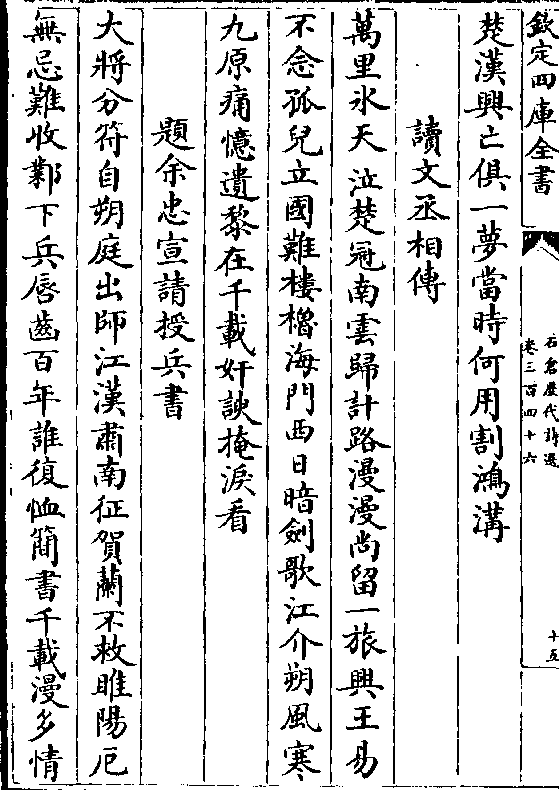 欽定四庫全書
石倉歷代詩選
卷三百四十六
十五
楚漢興亡俱一夢當時何用割鴻溝
讀文丞相傳
萬里氷天泣楚冠南雲歸計路漫漫尚留一旅興王易
不念孤兒立國難樓櫓海門西日暗劍歌江介朔風寒
九原痛憶遺黎在千載奸諛掩淚看
題余忠宣請授兵書
大將分符自朔庭出師江漢肅南征賀蘭不救睢陽厄
無忌難收鄴下兵唇齒百年誰復恤簡書千載漫多情